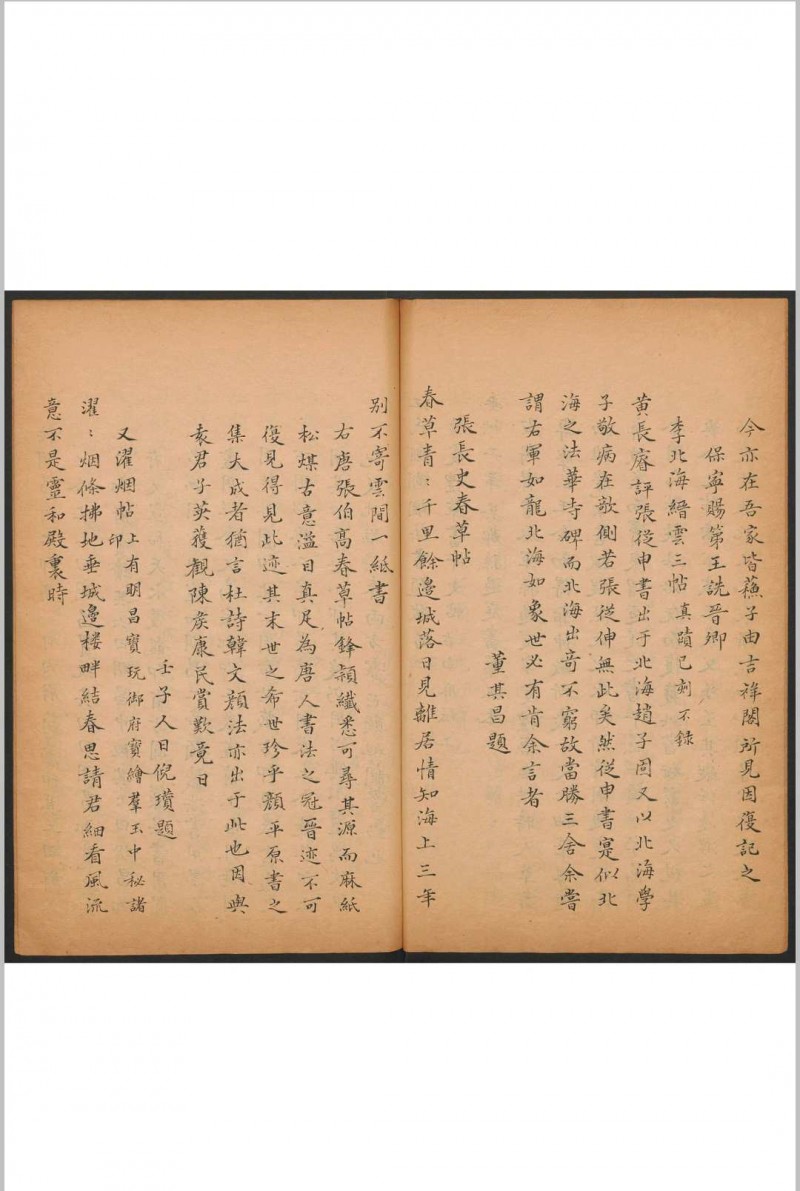 今亦在吾家皆蘓子由吉祥閣所見因復記之
保寧賜第王詵晉卿
李北海縉雲三帖真蹟已刻不錄
黃長睿評張從申書出于北海趙子固又以北海學
子敬病在欹側若張從伸無此矣然從申書寔似北
海之法華寺碑而北海出奇不窮故當勝三舍余嘗
謂右軍如龍北海如象世必有肯余言者
董其昌題
張長史春草帖
春草青：千里餘邊城落日見離居情知海上三年
別不寄雲間一紙書
右唐張伯高春草帖鋒頴纖悉可尋其源而麻紙
松煤古意溢目真足為唐人書法之冠晉迹不可
復見得見此迹其末世之希世珍乎顏平原書之
集大成者猶言杜詩韓文顏法亦出于此也因與
袁君子英獲觀陳矦康民賞歎竟日
壬子人日倪瓚題
又濯烟帖上有明昌寶玩御府寶繪羣玉中秘諸印
濯：烟條拂地垂城邊楼畔結春思請君細看風流
意不是靈和殿裏時